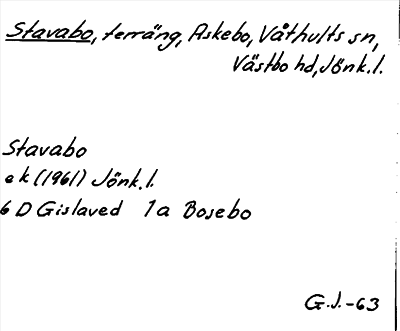 Stavabo, terräng, Askebo, Våthults sn,
Västbo hd, Jönk.l.
Stavabo
ek (1961) Jönk.l.
6 D Gislaved 1a Bosebo
G.J.-63